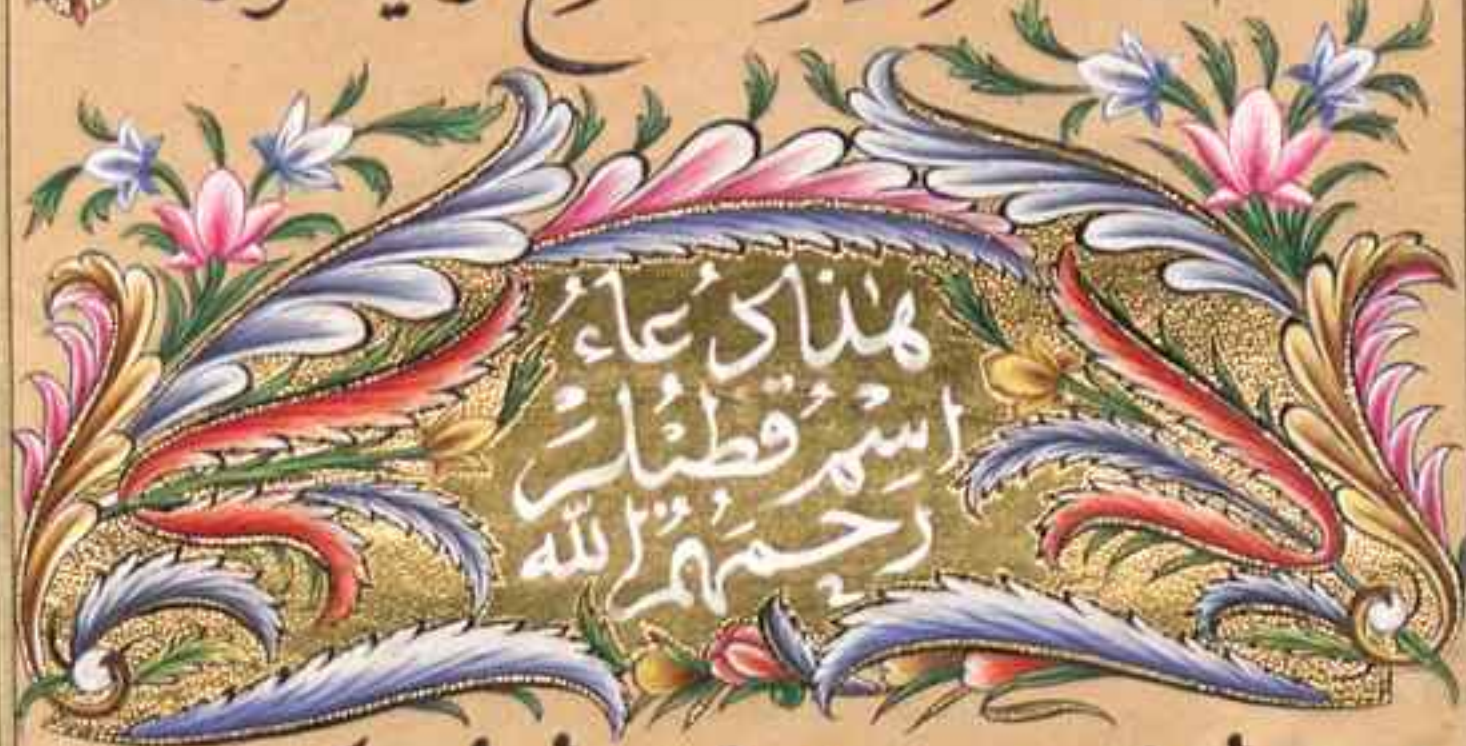 هٰذا دُعاءُ
اِسْمِ قُطبْلَرْ
رَحِمَهُمُ اللّٰه